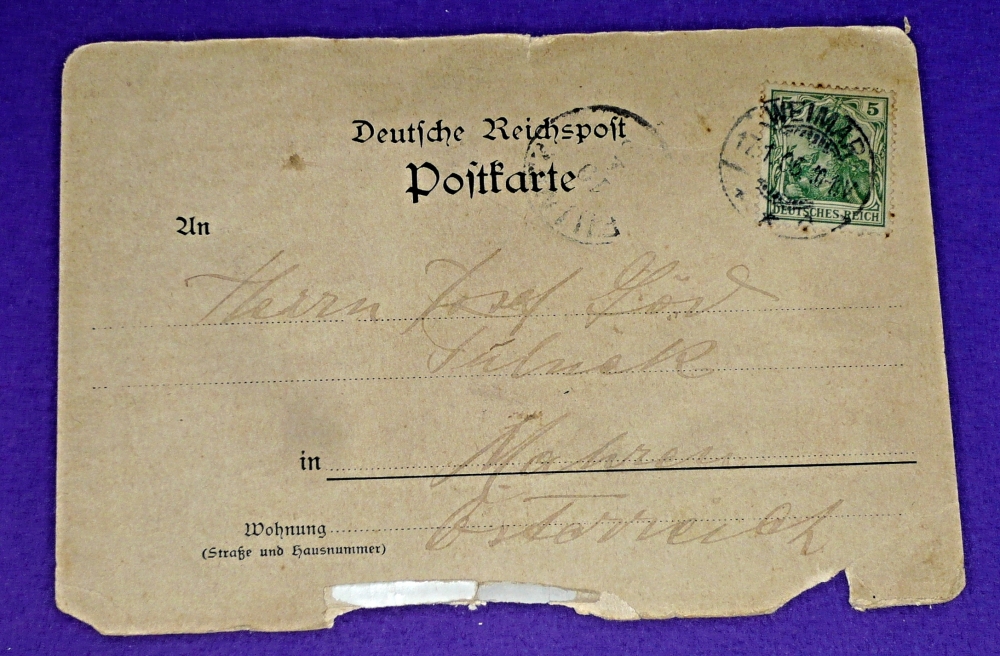 Deutsche Reichspost
Postkarte
5
WEIMAR
DEUTSCHES REICH
An
Herrn Josef
in Mähren
Wohnung Österreich
(Straße und Hausnummer)